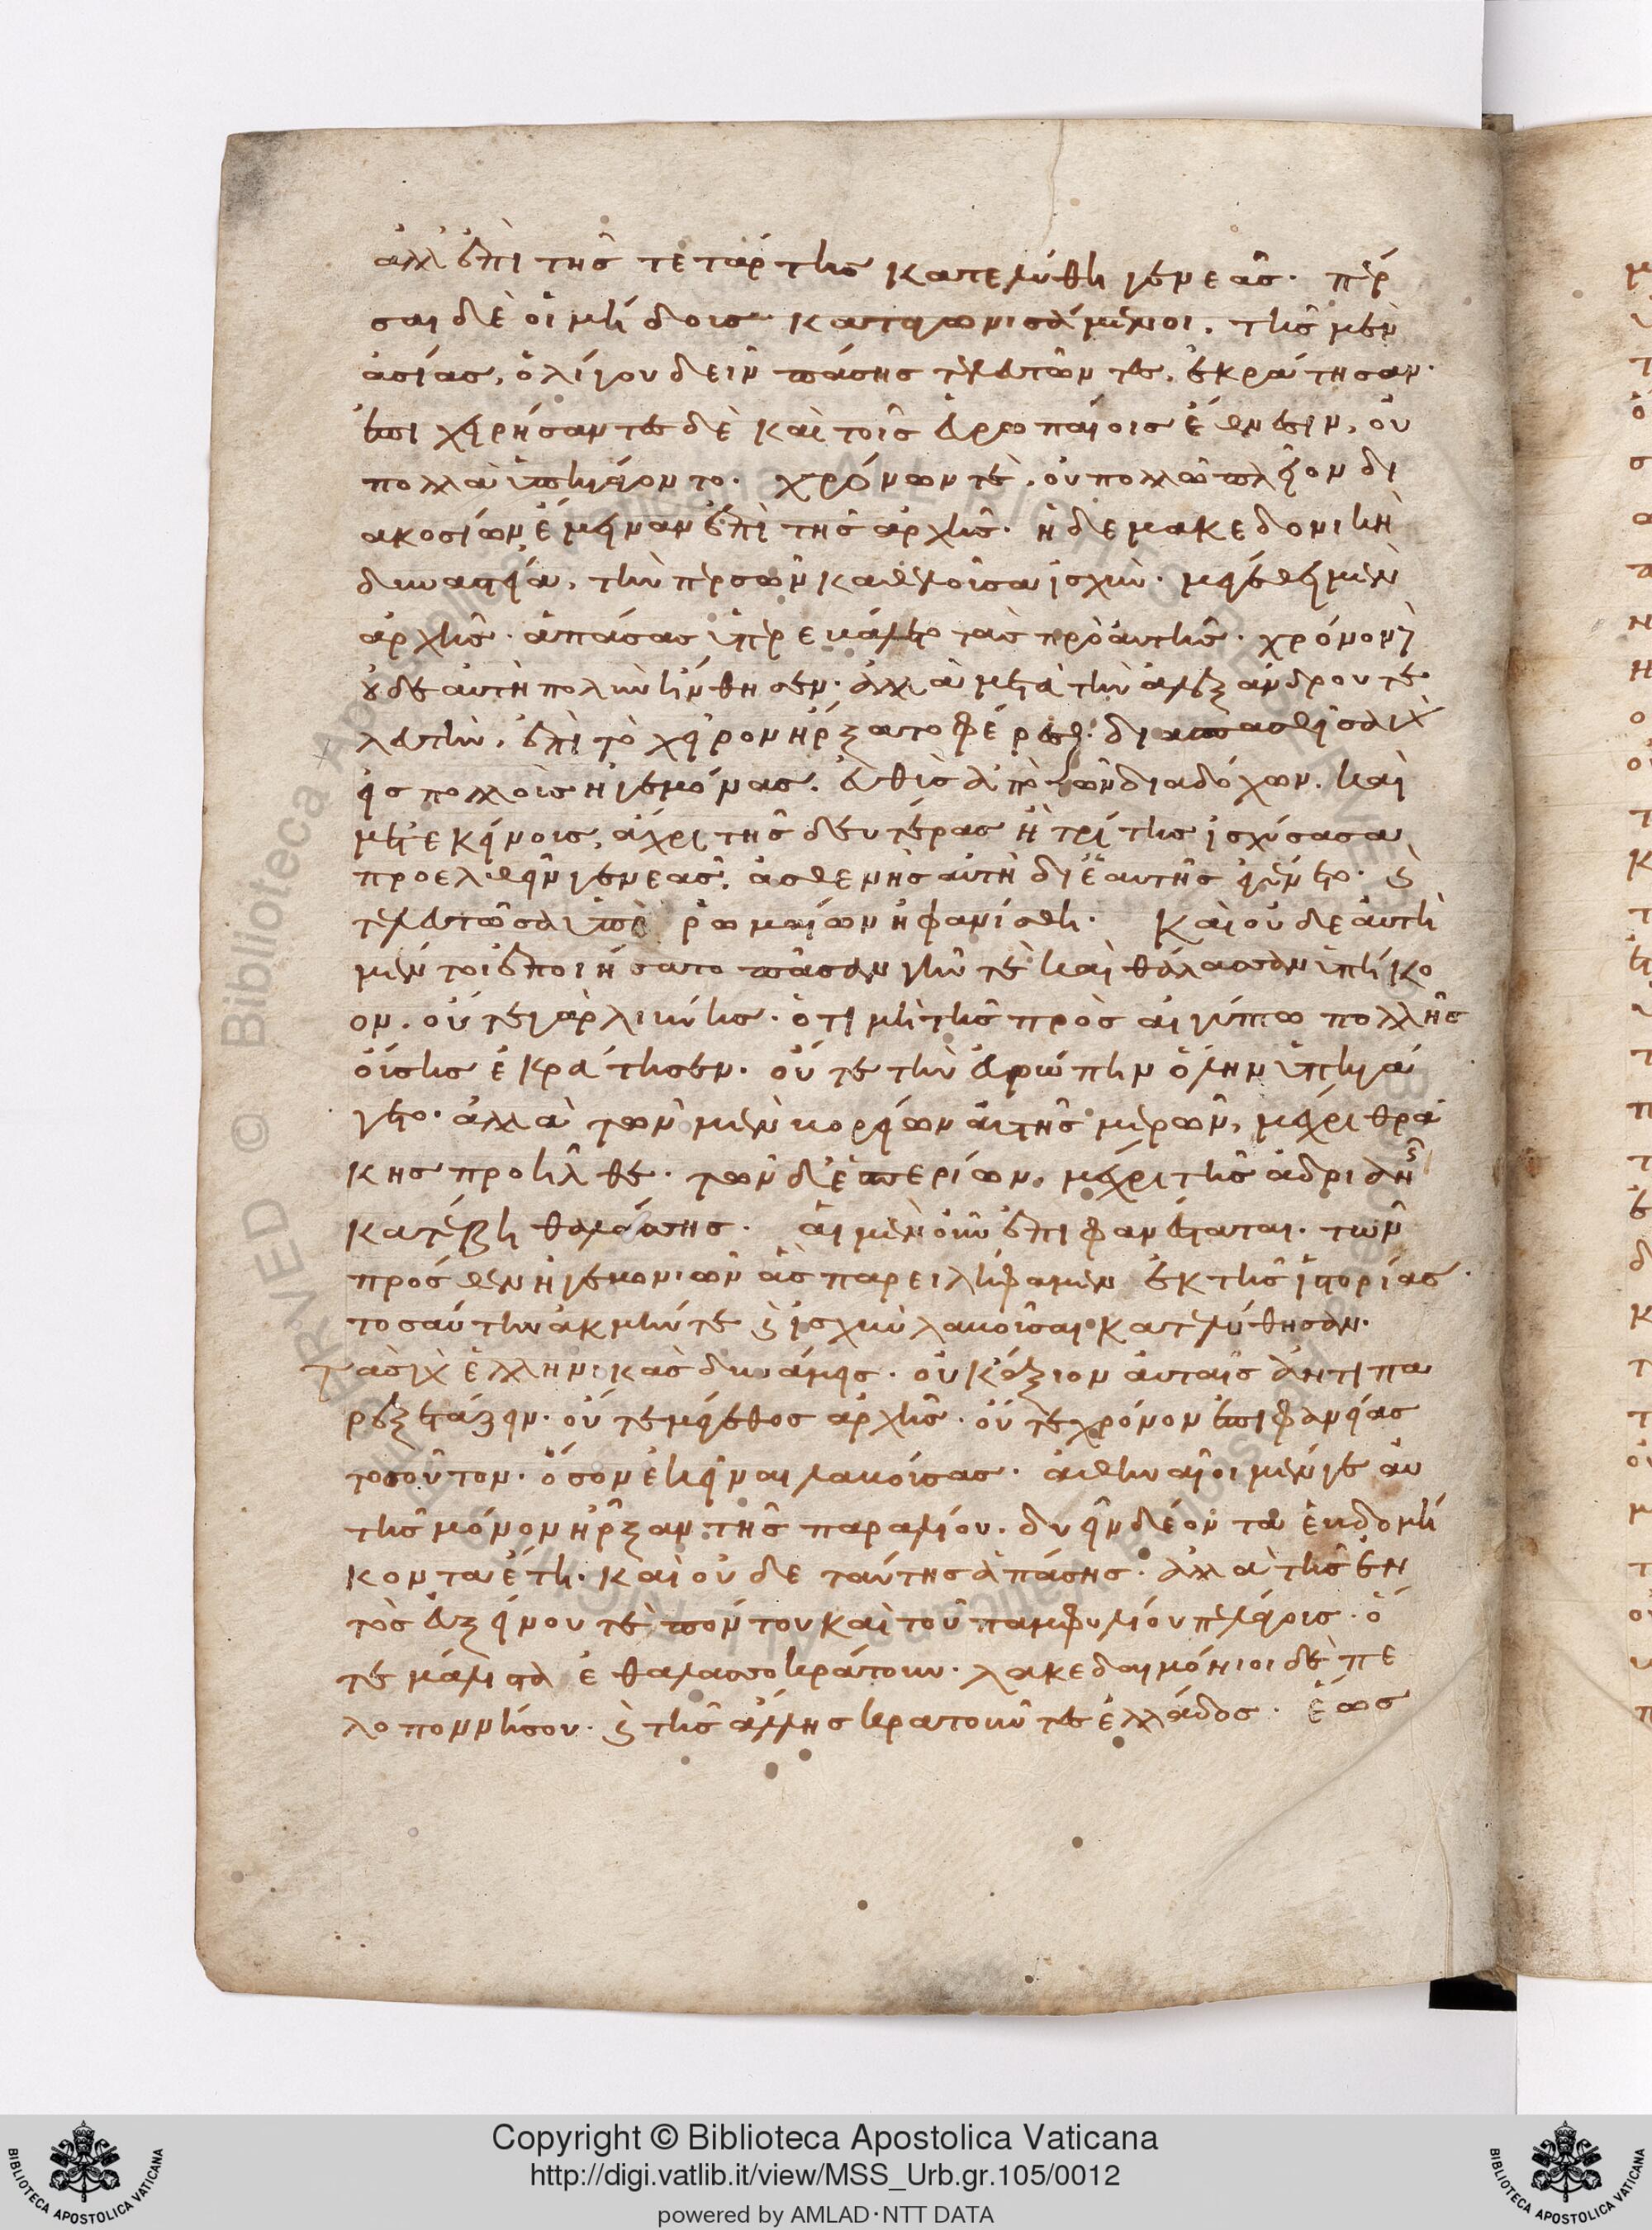 ἀλλ' ἐπὶ τῆς τετάρτης κατελύθη γενεᾶς· πέρ
σαι δὲ οἱ μήδους καταγωνισάμενοι, τῆς μὲν
ἀσίας, ὀλίγου δεῖν πάσης τελευτῶντες, ἐκράτησαν·
ἐπιχειρήσαντες δὲ καὶ τοῖς εὐρωπαίοις ἔθνεσιν, οὐ
πολλὰ ὑπηγάγοντο· χρόνων τὲ, οὐ πολλῶ πλεῖον δι
ακοσίων ἔμειναν ἐπὶ τῆς ἀρχῆς· ἡ δὲ μακεδονικὴ
δυναστεία, τὴν περσῶν καθελοῦσα ἰσχὺν· μεγέθει μὲν
ἀρχῆς· ἁπάσας ὑπερεβάλετο τὰς πρὸ αὐτῆς· χρόνον δὲ
οὐδὲ αὐτὴ πολὺν ἤνθησεν· ἀλλὰ μετὰ τὴν ἀλεξάνδρου τε
λευτὴν, ἐπὶ τὸ χεῖρον ἤρξατο φέρεσθαι· διασπασθεῖσα γὰρ
εἰς πολλοὺς ἡγεμόνας. εὐθὺς ἀπὸ τῶν διαδόχων. καὶ
μετ' ἐκείνους, ἄχρι τῆς δευτέρας ἢ τρίτης ἰσχύσασα
προελθεῖν γενεᾶς, ἀσθενὴς αὐτὴ δι' ἑαυτῆς ἐγένετο· καὶ
τελευτῶσα ὑπὸ ῥωμαίων ἠφανίσθη· Καὶ οὐδὲ αὐτὴ
μέντοι ἐποιήσατο πᾶσαν γῆν τὲ καὶ θάλασσαν ὑπήκο
ον. οὔτε γὰρ λιβύης· ὅτι μὴ τῆς πρὸς αἰγύπτω πολλῆς
οὔσης ἐκράτησεν. οὔτε τὴν εὐρώπην ὅλην ὑπηγά
γετο· ἀλλὰ τῶν μὲν βορείων αὐτῆς μερῶν, μέχρι θρά
κης προῆλθε· τῶν δ' ἑσπερίων, μέχρι τῆς ἀδριανῆς
κατέβη θαλάσσης· αἱ μὲν οὖν ἐπιφανέσταται· τῶν
πρόσθεν ἡγεμονιῶν ἃς παρειλήφαμεν ἐκ τῆς ἱστορίας·
τοσαύτην ἀκμήν τε καὶ ἰσχὺν λαβοῦσαι κατελύθησαν.
τὰς γὰρ ἑλληνικὰς δυνάμεις· οὐκ ἄξιον αὐταῖς ἀντιπα
ρεξετάζειν· οὔτε μέγεθος ἀρχῆς· οὔτε χρόνον ἐπιφανείας
τοσοῦτον· ὅσον ἐκεῖναι λαβούσας· ἀθηναῖοι μέν γε αὐ
τῆς μόνον ἦρξαν τῆς παραλίου· δυεῖν δέοντα ἑβδομή
κοντα ἔτη· καὶ οὐδὲ ταύτης ἁπάσης· ἀλλὰ τῆς ἐν
τὸς εὐξείνου τὲ πόντου καὶ τοῦ παμφυλίου πελάγους· ὅ
τε μάλιστα ἐθαλασσοκράτουν· λακεδαιμόνιοι δὲ πε
λοποννήσου· καὶ τῆς ἄλλης κρατοῦντες ἑλλάδος· ἕως
Copyright © Biblioteca Apostolica Vaticana
http://digi.vatlib.it/view/MSS_Urb.gr.105/0012
powered by AMLAD·NTT DATA